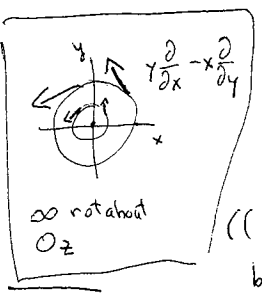 y
y ∂/∂x - x ∂/∂y
x
∞ rot about
Oz
((
b